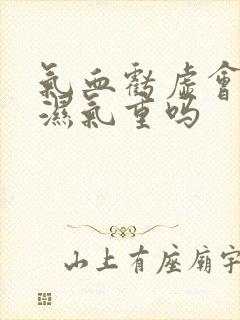 氣血虧虛會
濕氣重嗎
山上有座廟宇